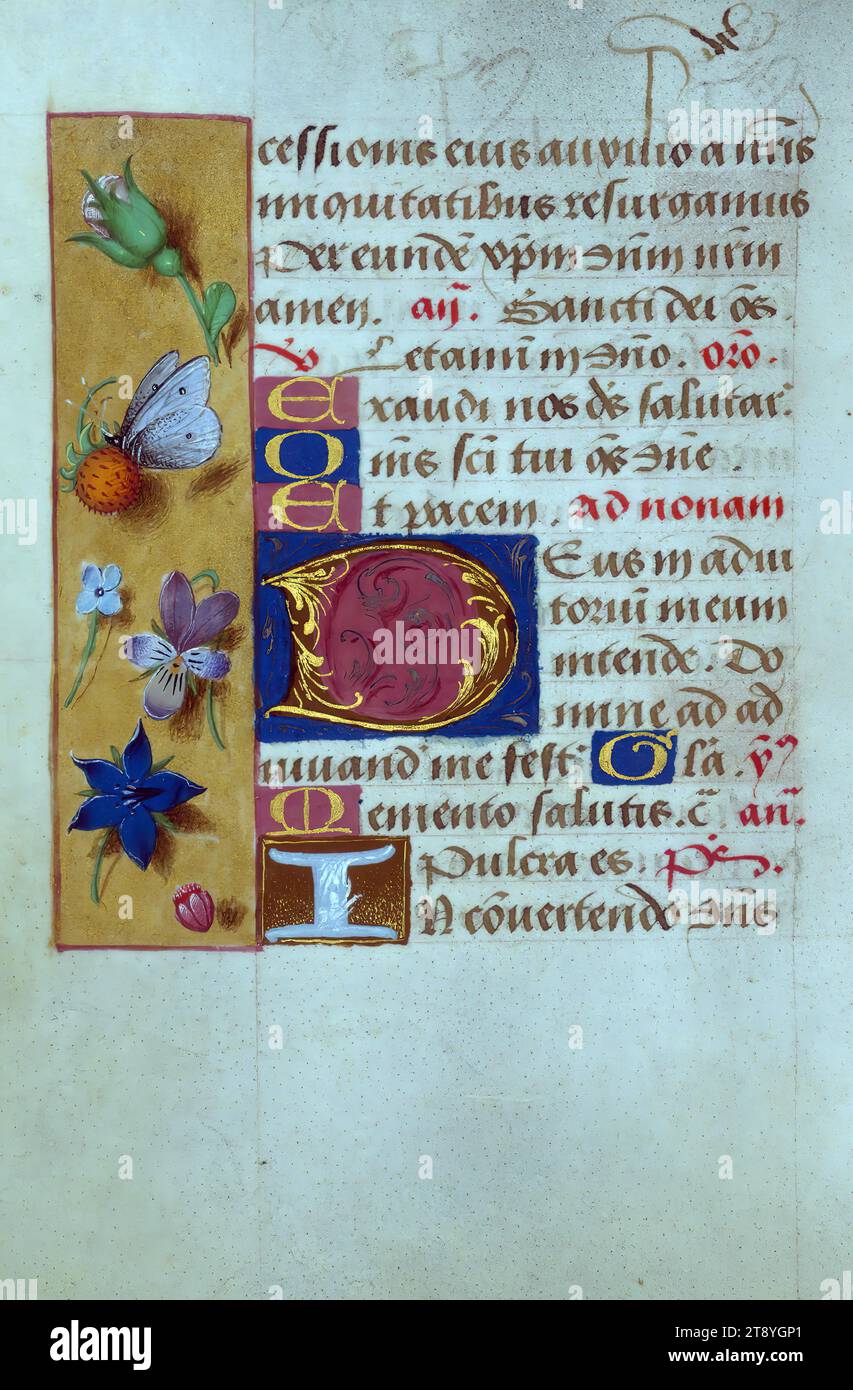 cessionis eius auxilio a nr̄is
iniquitatibus resurgamus
Per eundē xp̄m dn̄m nr̄m
amen. an̄. Sancti dei om̄s.
v Letamini in dn̄o. oro.
Exaudi nos ds̄ salutar.
Om̄s sc̄i tui qs̄ dn̄e.
Et pacem. ad nonam
Deus in adiu
toriū meum
intende. Do
mine ad ad
iuvand' me fest. Gl̄a. ym̄
Memento salutis. c̄ an̄.
Pulcra es. ps̄.
IN cōvertendo dn̄s
alamy
Image ID: 2T8YGP1
www.alamy.com